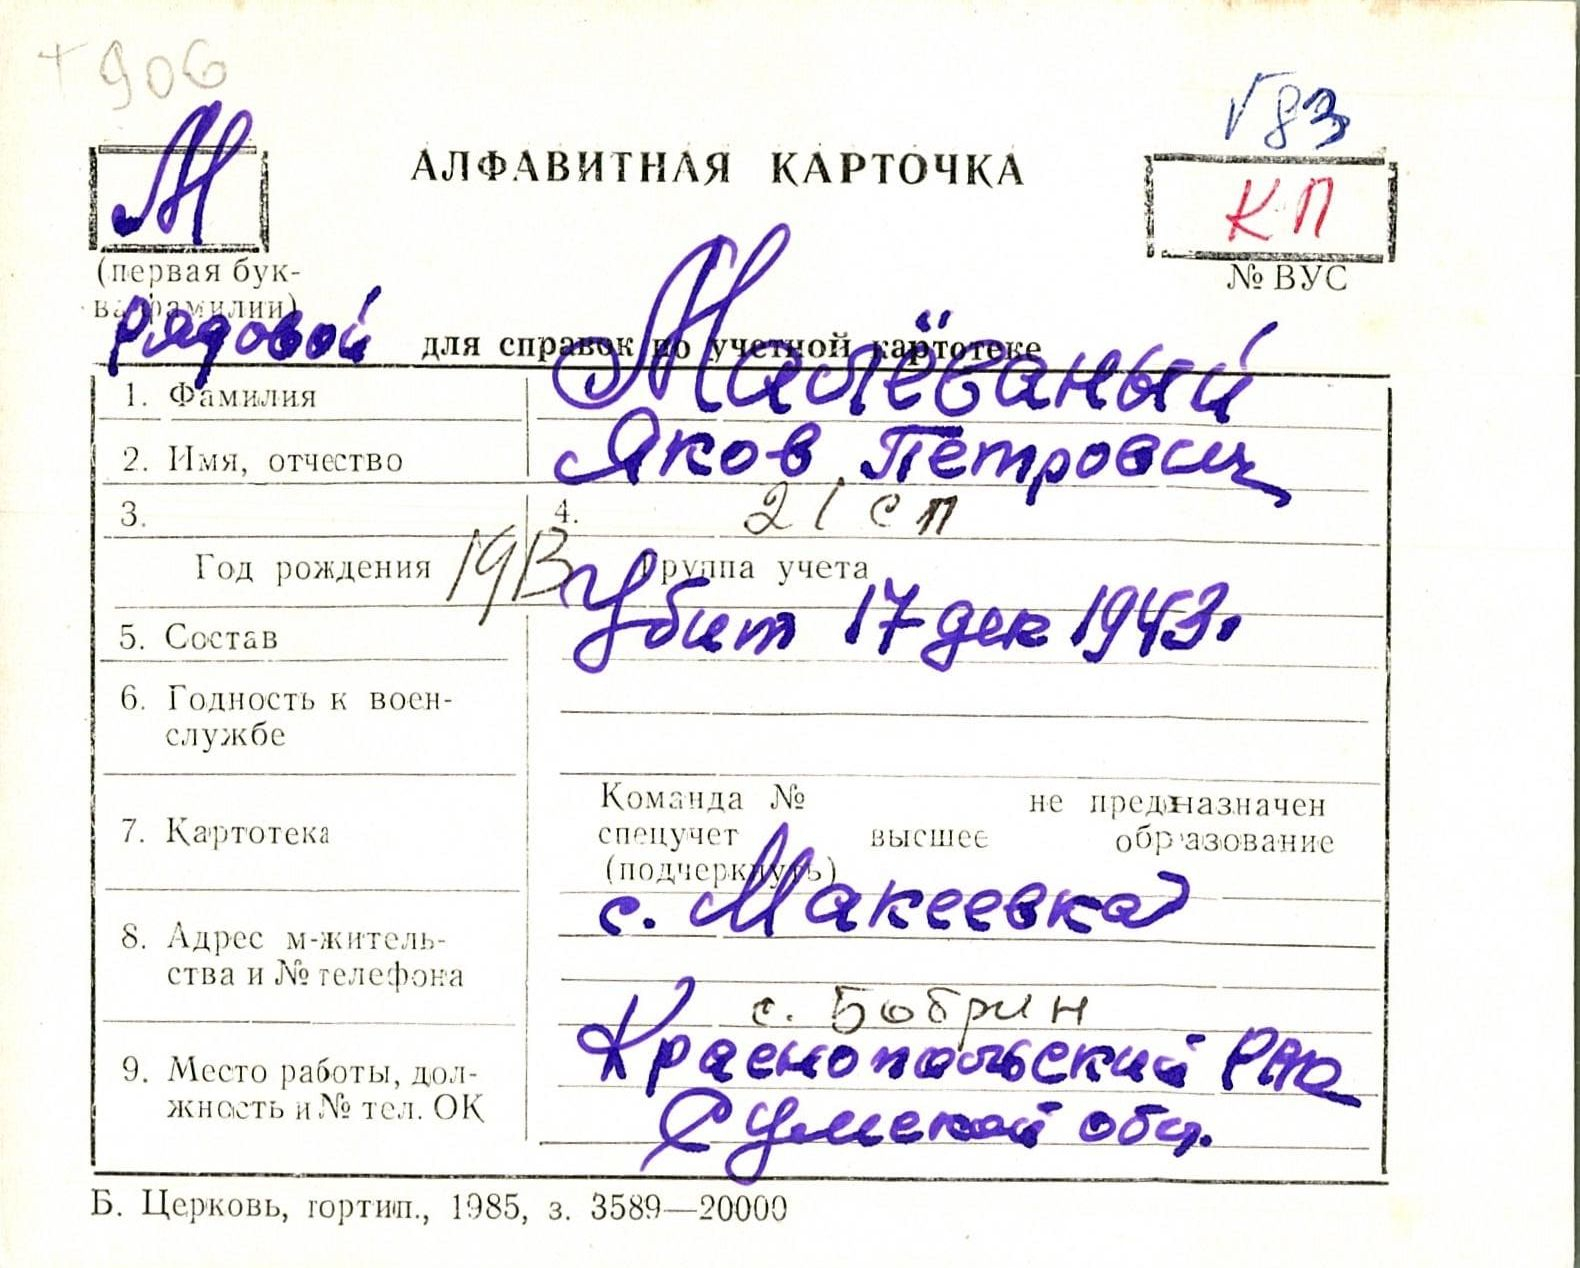 + 906
√83
М
АЛФАВИТНАЯ КАРТОЧКА
КП
(первая бук-
ва фамилии)
№ ВУС
рядовой
для справок по учетной картотеке
1. Фамилия
Малёваный
2. Имя, отчество
Яков Петрович
3.
4.
21 сп
Год рождения 1913
Группа учета
Убит 17 дек 1943.
5. Состав
6. Годность к воен-
службе
7. Картотека
Команда № не предназначен
спецучет высшее образование
(подчеркнуть)
с. Макеевка
8. Адрес м-житель-
ства и № телефона
с. Бобрин
Краснопольский РВК
9. Место работы, дол-
жность и № тел. ОК
Сумской обл.
Б. Церковь, гортип., 1985, з. 3589—20000